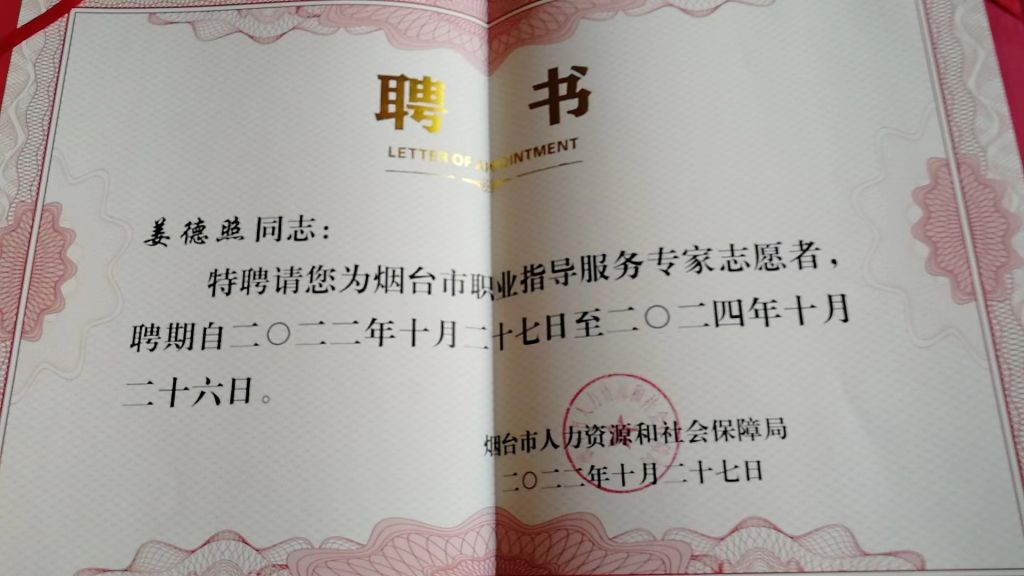 聘书
LETTER OF APPOINTMENT
姜德照同志：
特聘请您为烟台市职业指导服务专家志愿者，
聘期自二〇二二年十月二十七日至二〇二四年十月
二十六日。
烟台市人力资源和社会保障局
二〇二二年十月二十七日